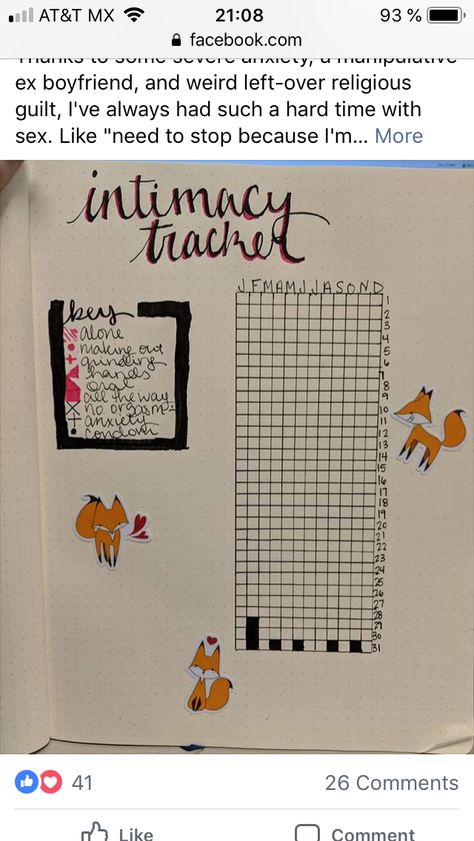 AT&T MX 21:08 93 %
facebook.com
Thanks to some severe anxiety, a manipulative
ex boyfriend, and weird left-over religious
guilt, I've always had such a hard time with
sex. Like "need to stop because I'm... More
intimacy
tracker
J F M A M J J A S O N D
key
alone
making out
grinding
hands
oral
all the way
no orgasm
anxiety
condom
1
2
3
4
5
6
7
8
9
10
11
12
13
14
15
16
17
18
19
20
21
22
23
24
25
26
27
28
29
30
31
41 26 Comments
Like Comment